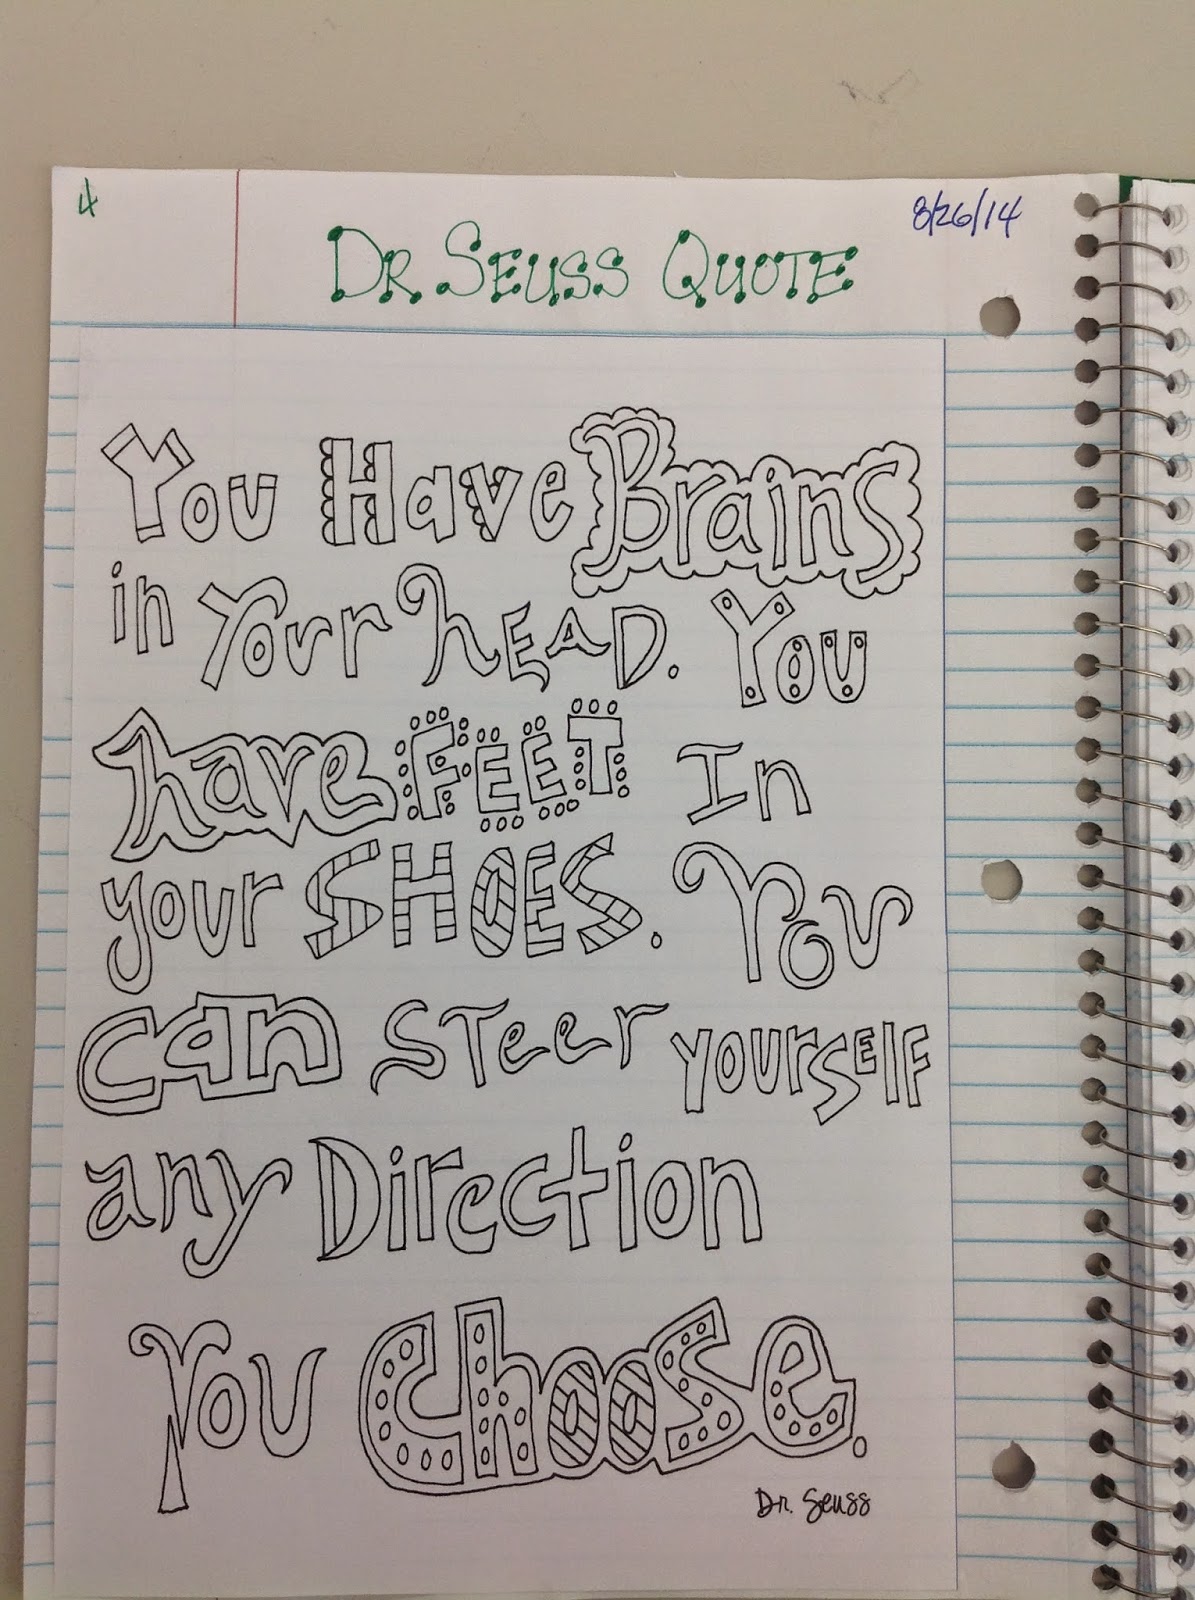 4
8/26/14
DR. SEUSS QUOTE
You Have Brains
in Your hEAD. You
have FEET In
your SHOES. You
can STeer yourself
any Direction
You Choose.
Dr. Seuss